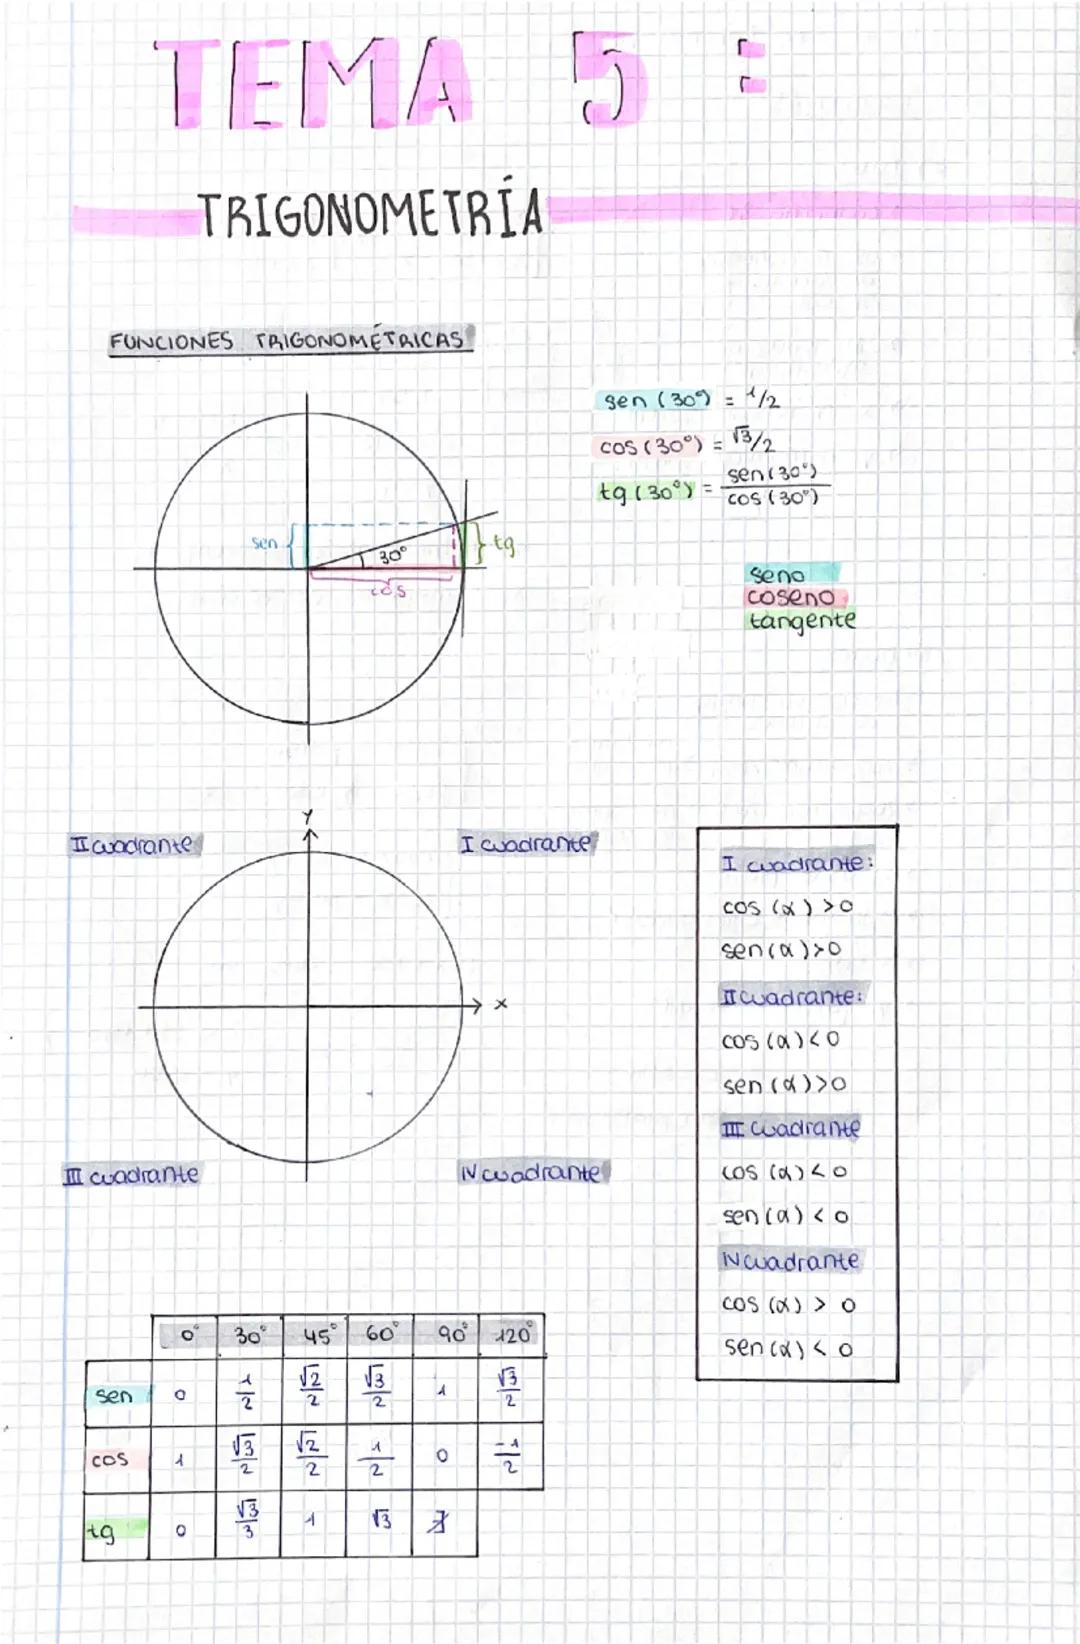 TEMA 5:
TRIGONOMETRÍA
FUNCIONES TRIGONOMÉTRICAS
sen (30º) = 1/2
cos (30°) = √3/2
tg (30°) = sen (30°) / cos (30°)
sen
30°
tg
cos
seno
coseno
tangente
y
II cuadrante
I cuadrante
x
III cuadrante
IV cuadrante
I cuadrante:
cos (α) > 0
sen (α) > 0
II cuadrante:
cos (α) < 0
sen (α) > 0
III cuadrante
cos (α) < 0
sen (α) < 0
IV cuadrante
cos (α) > 0
sen (α) < 0
0° 30° 45° 60° 90° 120°
sen 0 1/2 √2/2 √3/2 1 √3/2
cos 1 √3/2 √2/2 1/2 0 -1/2
tg 0 √3/3 1 √3 ∄